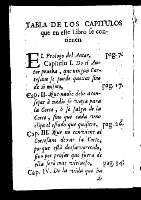 TABLA DE LOS CAPITULOS
que en este Libro se con-
tienen.
EL Prologo del Autor, pag. 7.
Capitulo I. Do el Au-
tor prueba, que ningun Cor-
tesano se puede quexar sino
de si mismo, pag. 17.
Cap. II. Que nadie debe acon-
sejar à nadie se vaya para
la Corte, ò se salga de la
Corte, sino que cada uno
elija el estado que quisiere, pag. 26.
Cap. III. Que no conviene al
Cortesano dexar la Corte,
porque està desfavorecido,
sino por pensar que fuera de
ella serà mas virtuoso, pag. 34.
Cap. IV. De la vida que ha
de